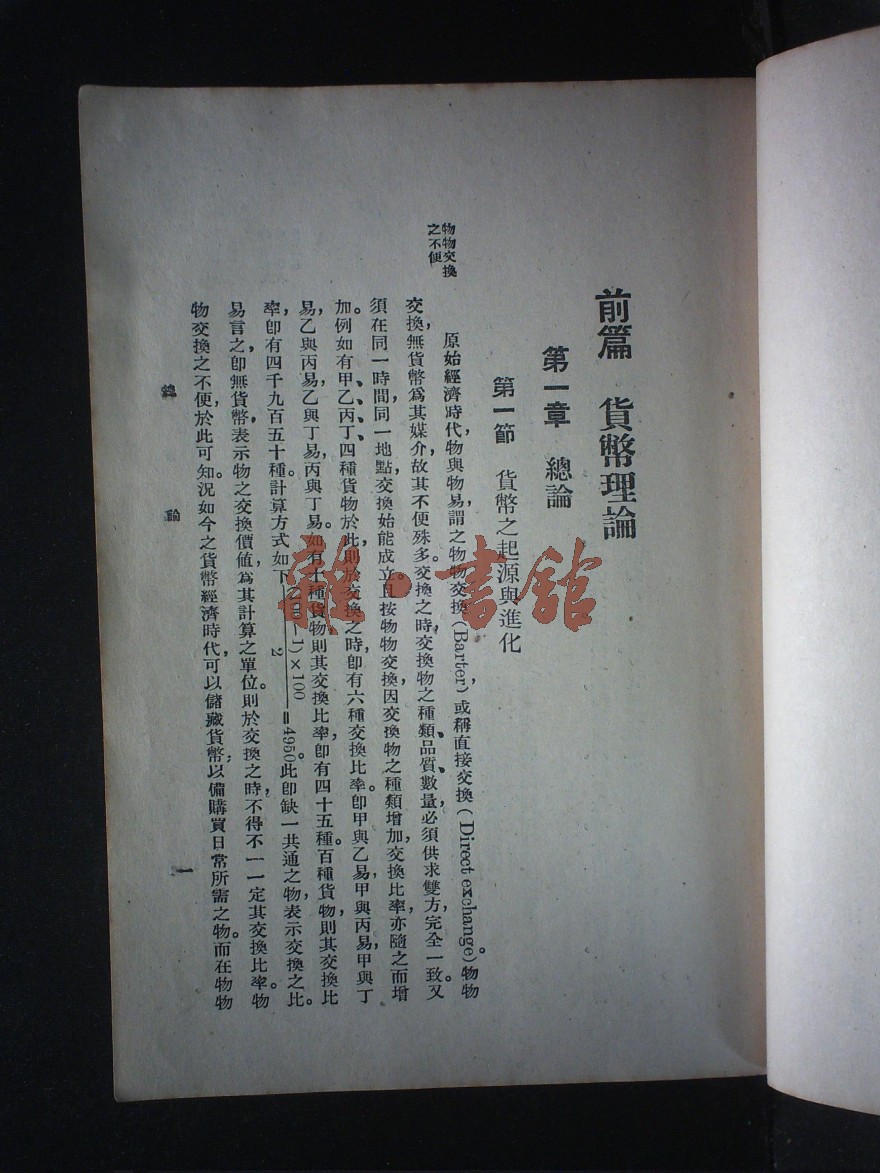 前篇　貨幣理論
第一章　總論
第一節　貨幣之起源與進化
物物交換
之不便
原始經濟時代物與物易，謂之物物交換(Barter)，或稱直接交換(Direct exchange)。物物
交換，無貨幣爲其媒介，故其不便殊多。交換之時，交換物之種類、品質、數量，必須供求雙方完全一致。又
須在同一時間，同一地點，交換始能成立。且按物物交換，因交換物之種類增加，交換比率，亦隨之而增
加。例如有甲、乙、丙、丁、四種貨物於此，則於交換之時，卽有六種交換比率。卽甲與乙易，甲與丙易，甲與丁
易，乙與丙易，乙與丁易，丙與丁易。如有十種貨物，則其交換比率，卽有四十五種。百種貨物，則其交換比
率，卽有四千九百五十種。計算方式如下(100−1)×100/2=4950。此卽缺一共通之物，表示交換之比。
易言之，卽無貨幣，表示物之交換價値，爲其計算之單位。則於交換之時，不得不一一定其交換比率。物
物交換之不便，於此可知。況如今之貨幣經濟時代，可以儲藏貨幣，以備購買日常所需之物。而在物物
總　論
一
龍·書館